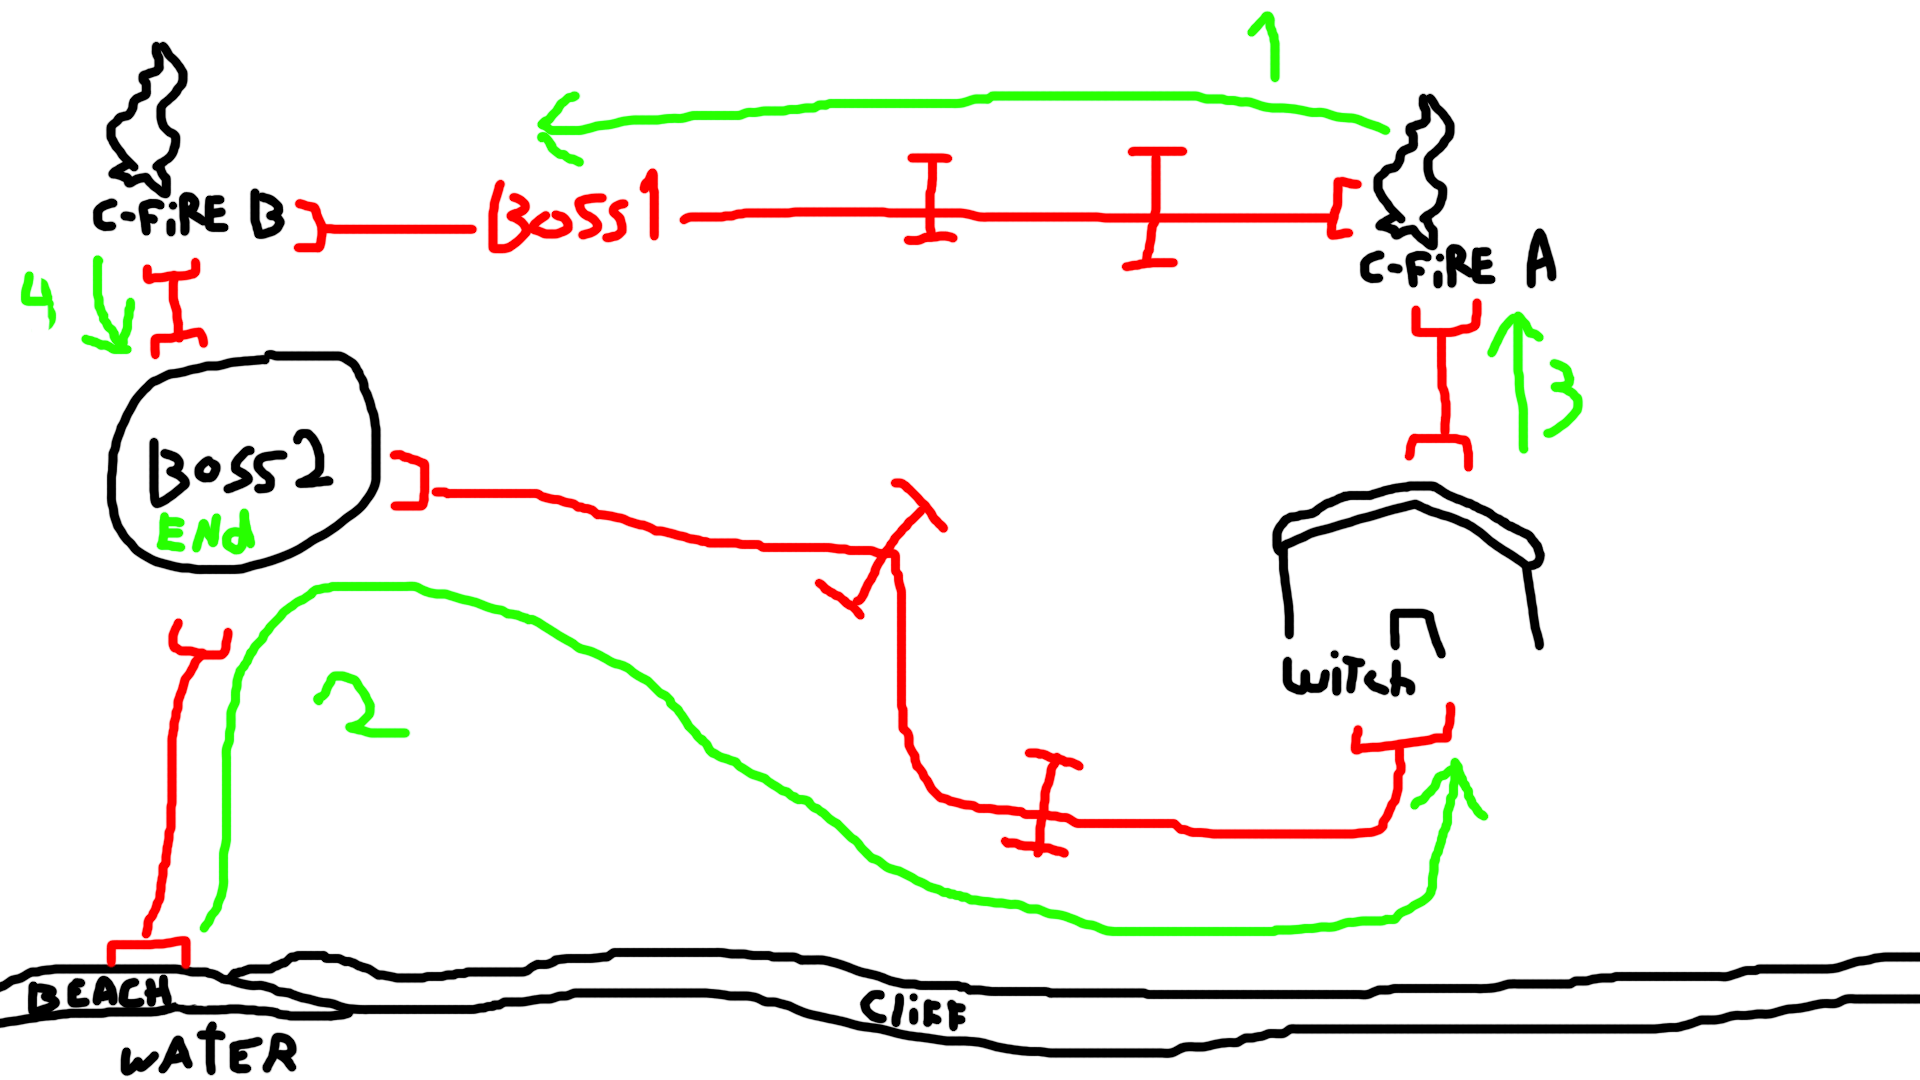 1
C-FiRE B
BOSS1
C-FiRE A
4
3
BOSS2
ENd
WiTCh
2
BEACH
CliFF
WATER